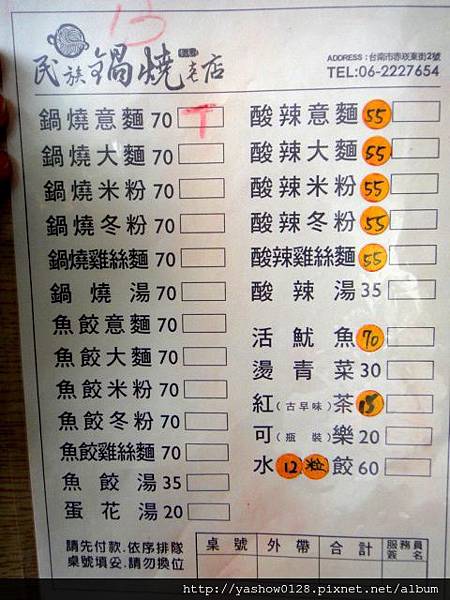 民族鍋燒老店
ADDRESS:台南市赤崁東街2號
TEL:06-2227654
鍋燒意麵 70 T
鍋燒大麵 70
鍋燒米粉 70
鍋燒冬粉 70
鍋燒雞絲麵 70
鍋燒湯 70
魚餃意麵 70
魚餃大麵 70
魚餃米粉 70
魚餃冬粉 70
魚餃雞絲麵 70
魚餃湯 35
蛋花湯 20
酸辣意麵 55
酸辣大麵 55
酸辣米粉 55
酸辣冬粉 55
酸辣雞絲麵 55
酸辣湯 35
活魷魚 70
燙青菜 30
紅(古早味)茶 15
可(瓶裝)樂 20
水12粒餃 60
請先付款.依序排隊
桌號填妥.請勿換位
桌號 外帶 合計 服務員簽名
http://yashow0128.pixnet.net/album